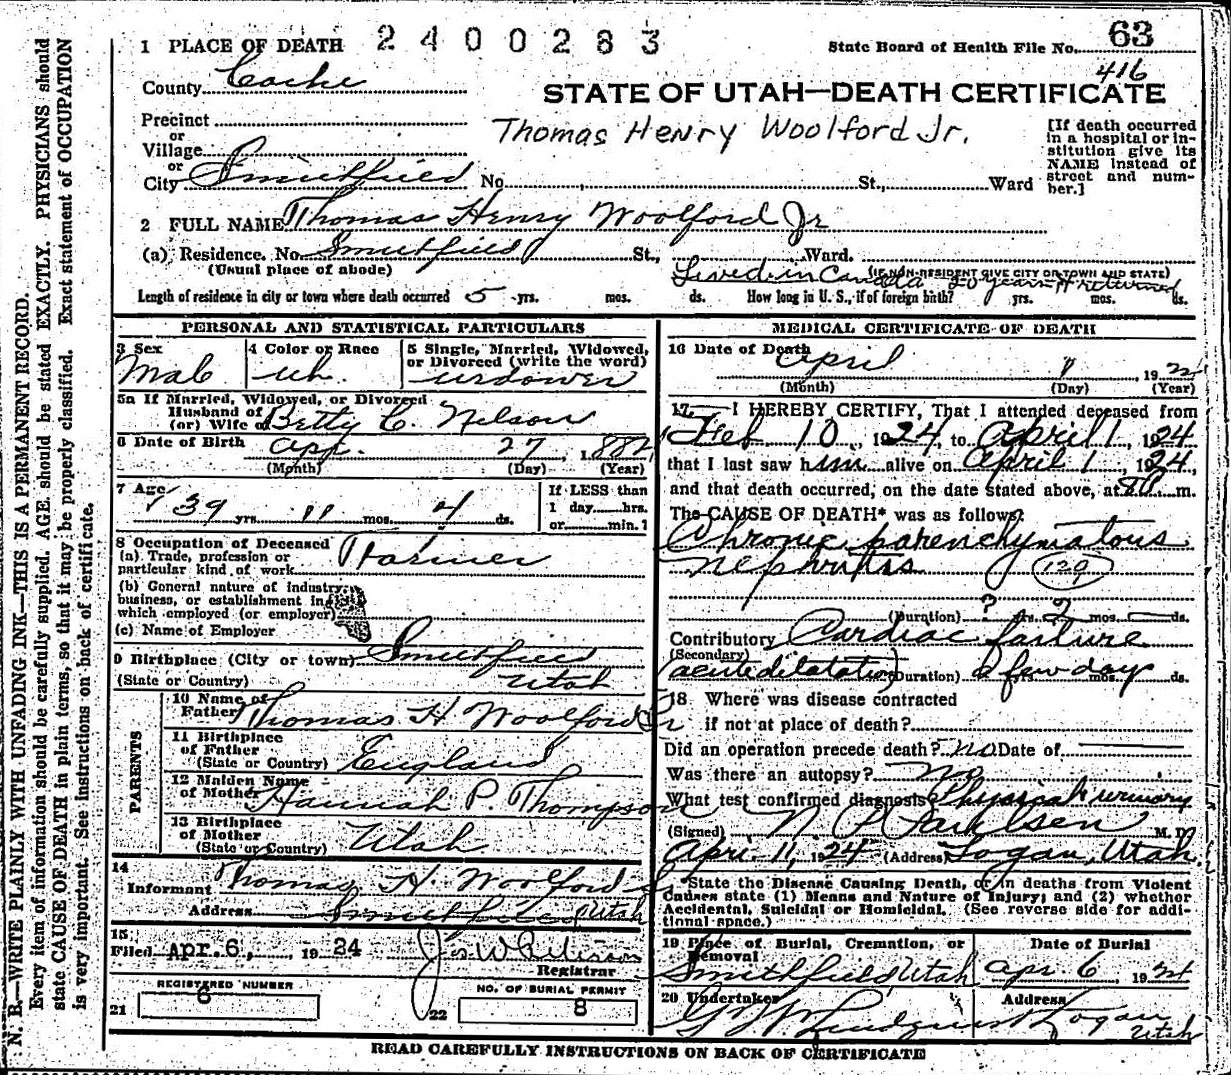 1 PLACE OF DEATH 2400283 State Board of Health File No. 63
416
County Cache STATE OF UTAH—DEATH CERTIFICATE
Precinct Thomas Henry Woolford Jr. [If death occurred in a hospital or institution give its NAME instead of street and number.]
or
Village
or
City Smithfield No. St., Ward
2 FULL NAME Thomas Henry Woolford Jr
(a) Residence. No. Smithfield St., Ward.
(Usual place of abode) (IF NON-RESIDENT GIVE CITY OR TOWN AND STATE)
Lived in Canada 20 years returned
Length of residence in city or town where death occurred 5 yrs. mos. ds. How long in U. S., if of foreign birth? yrs. mos. ds.
PERSONAL AND STATISTICAL PARTICULARS
3 Sex 4 Color or Race 5 Single, Married, Widowed, or Divorced (write the word)
Male wh. widower
5a If Married, Widowed, or Divorced
Husband of
(or) Wife of Betty C. Nelson
6 Date of Birth apr. 27, 1884
(Month) (Day) (Year)
7 Age 39 yrs. 11 mos. 4 ds. If LESS than 1 day hrs. or min.1
8 Occupation of Deceased
(a) Trade, profession or
particular kind of work Farmer
(b) General nature of industry,
business, or establishment in
which employed (or employer)
(c) Name of Employer
9 Birthplace (City or town) Smithfield
(State or Country) Utah
PARENTS
10 Name of
Father Thomas H Woolford Sr
11 Birthplace
of Father
(State or Country) England
12 Maiden Name
of Mother Hannah P. Thompson
13 Birthplace
of Mother
(State or Country) Utah
14
Informant Thomas H. Woolford Sr
Address Smithfield Utah
15
Filed Apr. 6, 1924 Jos W Peterson
Registrar
REGISTERED NUMBER
21 6
NO. OF BURIAL PERMIT
22 8
MEDICAL CERTIFICATE OF DEATH
16 Date of Death
April 1 192
(Month) (Day) (Year)
17 I HEREBY CERTIFY, That I attended deceased from
Feb 10, 1924, to April 1, 1924
that I last saw him alive on April 1, 1924,
and that death occurred, on the date stated above, at m.
The CAUSE OF DEATH* was as follows:
Chronic parenchymatous
nephritis 129
(Duration) ? yrs. 9 mos. ds.
Contributory Cardiac failure
(Secondary)
(acute dilatation) (Duration) a few days mos. ds.
18 Where was disease contracted
if not at place of death?
Did an operation precede death? no Date of
Was there an autopsy? no
What test confirmed diagnosis? Physical & urinary
(Signed) N. P. Paulsen M. D.
Apr. 11, 1924 (Address) Logan, Utah.
*State the Disease Causing Death, or in deaths from Violent
Causes state (1) Means and Nature of Injury; and (2) whether
Accidental, Suicidal or Homicidal. (See reverse side for addi-
tional space.)
19 Place of Burial, Cremation, or Removal Date of Burial
Smithfield, Utah apr. 6 1924
20 Undertaker Address
Lindquist Logan Utah
READ CAREFULLY INSTRUCTIONS ON BACK OF CERTIFICATE
N. B.—WRITE PLAINLY WITH UNFADING INK—THIS IS A PERMANENT RECORD.
Every item of information should be carefully supplied. AGE should be stated EXACTLY. PHYSICIANS should
state CAUSE OF DEATH in plain terms, so that it may be properly classified. Exact statement of OCCUPATION
is very important. See instructions on back of certificate.